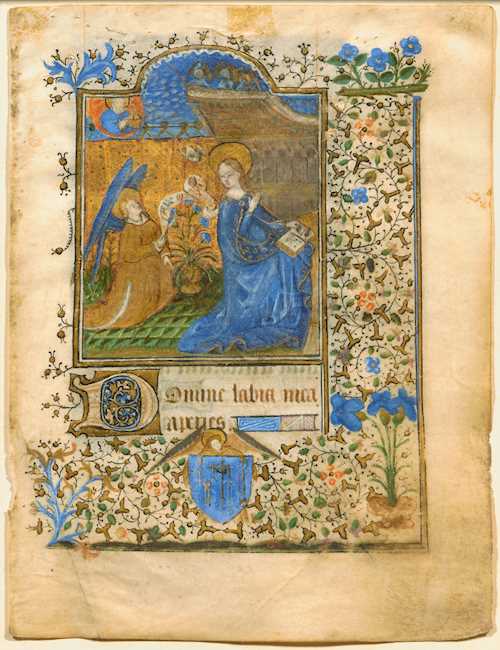 Domine labia mea
aperies